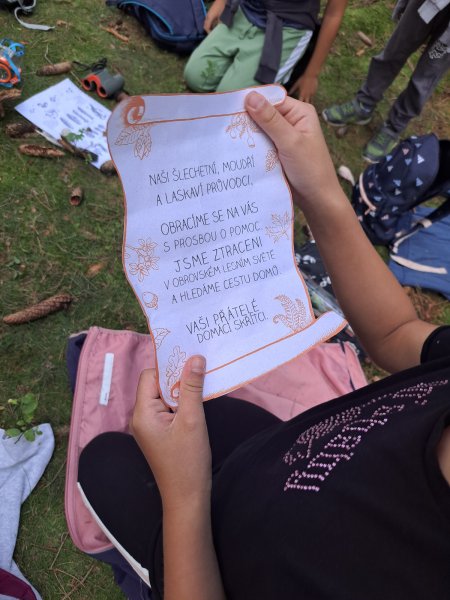 NAŠI ŠLECHETNÍ, MOUDŘÍ
A LASKAVÍ PRŮVODCI,
OBRACÍME SE NA VÁS
S PROSBOU O POMOC.
JSME ZTRACENI
V OBROVSKÉM LESNÍM SVĚTĚ
A HLEDÁME CESTU DOMŮ.
VAŠI PŘÁTELÉ
DOMÁCÍ SKŘÍTCI.